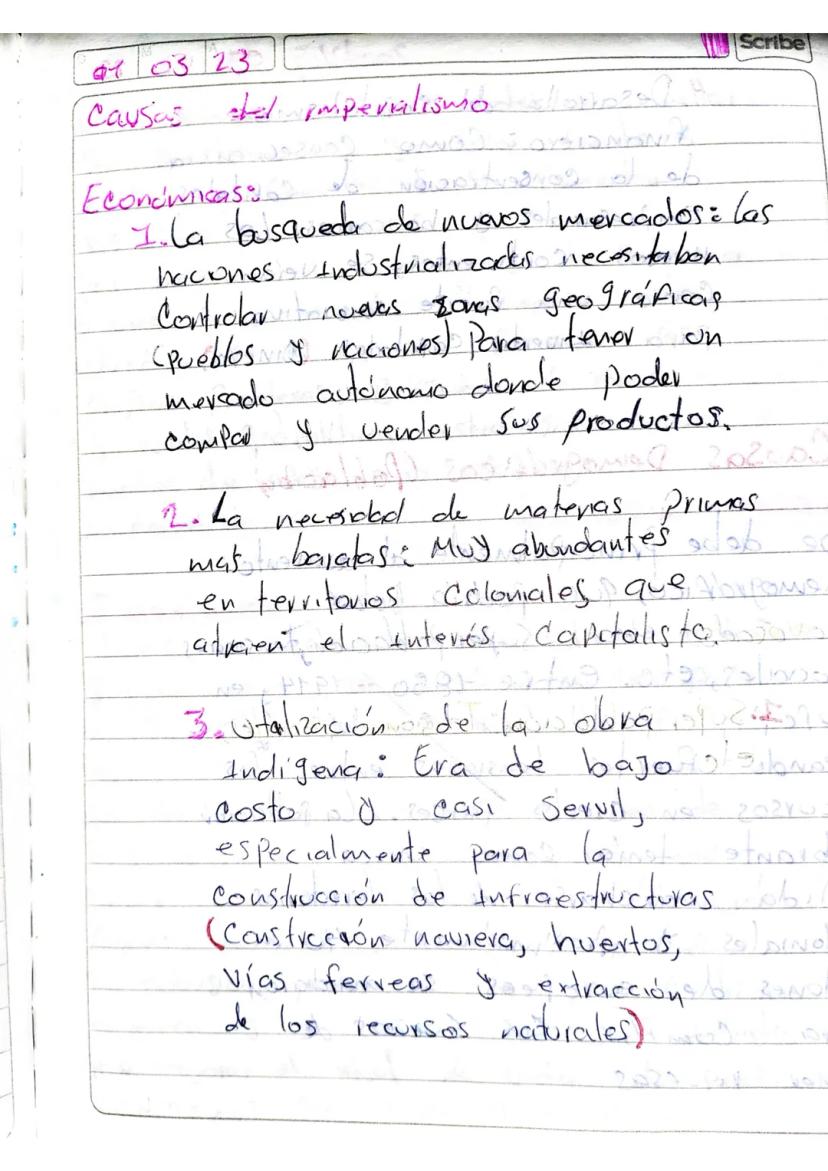 01 03 23
Scribe
Causas del imperialismo
Económicas:
1. La busqueda de nuevos mercados: Las
naciones industrializadas necesitabon
Controlar nuevas zonas geográficas
(pueblos y naciones) Para tener un
mercado autónomo donde poder
compar y vender sus productos.
2. La necesidad de materias primas
mas baratas: Muy abundantes
en territorios coloniales que
atraien el interés Capitalista.
3. Utalización de la obra
Indígena: Era de bajo
costo y casi servil,
especialmente para la
construcción de infraestructuras
(Constrcción naviera, huertos,
Vías ferreas y extracción
de los recursos naturales)